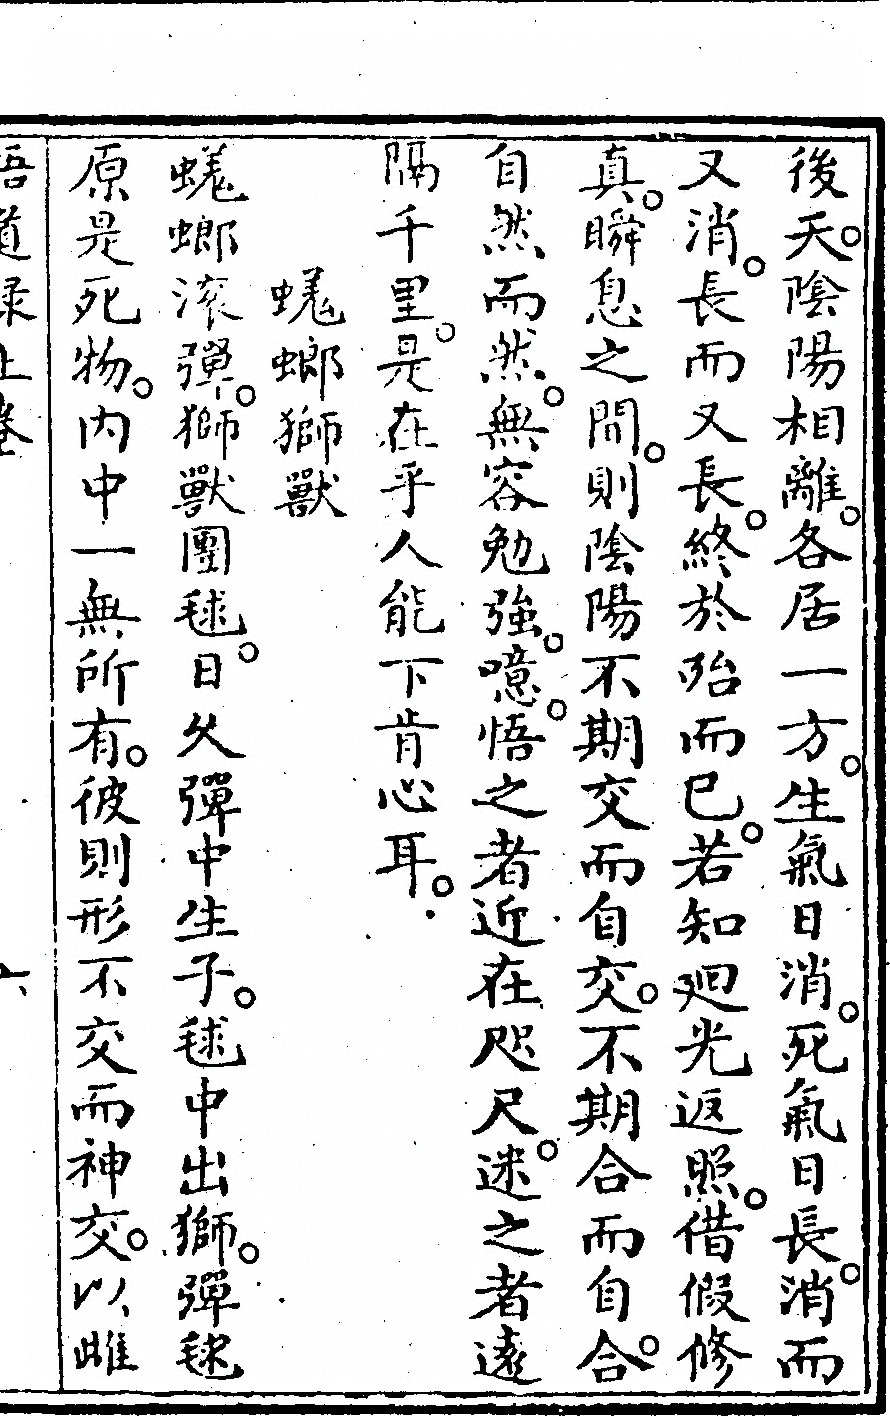 後天。陰陽相離。各居一方。生氣日消。死氣日長。消而
又消。長而又長。終於殆而已。若知廻光返照。借假修
真。瞬息之間。則陰陽不期交而自交。不期合而自合。
自然而然。無容勉強。噫。悟之者近在咫尺。迷之者遠
隔千里。是在乎人能下肯心耳。
蜣螂獅獸
蜣螂滚彈。獅獸團毬。日久彈中生子。毬中出獅。彈毬
原是死物。内中一無所有。彼則形不交而神交。以雌
悟道録上卷 六